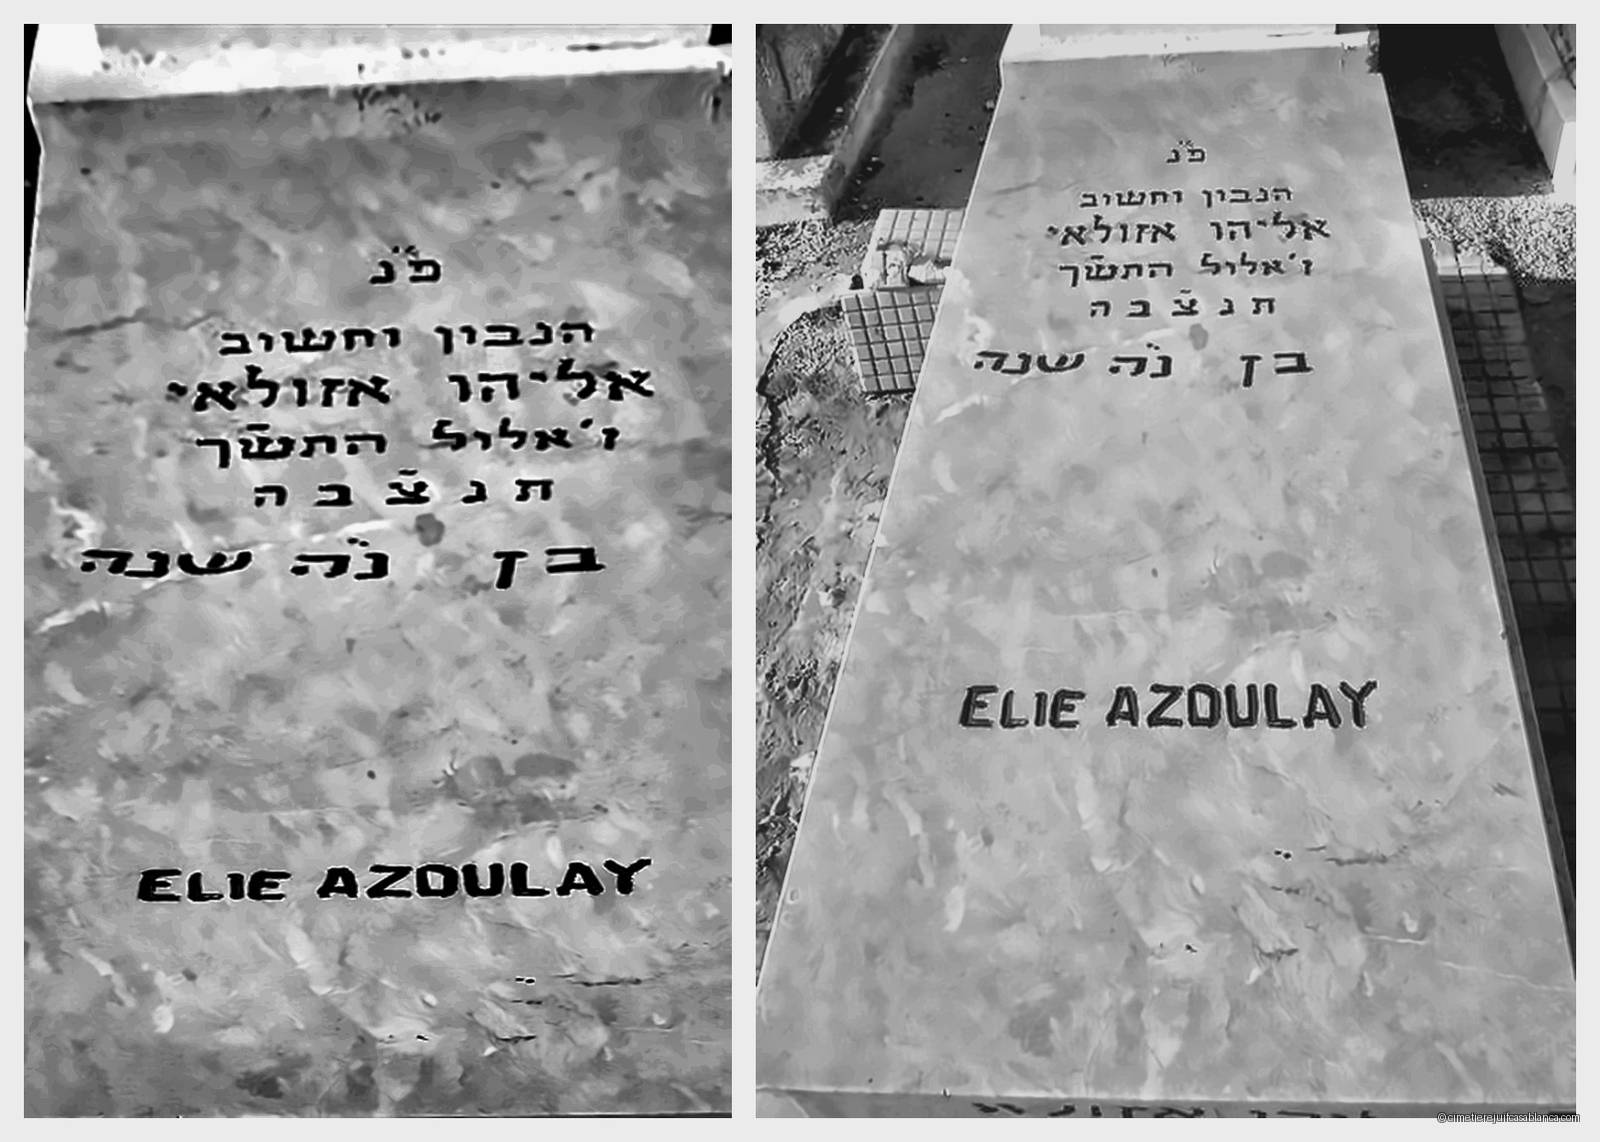 פ״נ
הנבין וחשוב
אליהו אזולאי
ז׳אליול התש״ך
ת נ צ ב ה
בן נ״ה שנה
ELIE AZOULAY
פ״נ
הנבין וחשוב
אליהו אזולאי
ז׳אליול התש״ך
ת נ צ ב ה
בן נ״ה שנה
ELIE AZOULAY
© cimetierejuifcasablanca.com